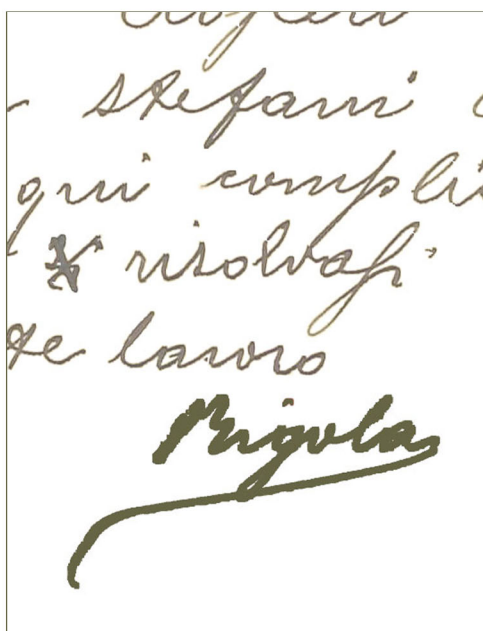 stefani
qui compli
risolvasi
te lavoro
Rigola